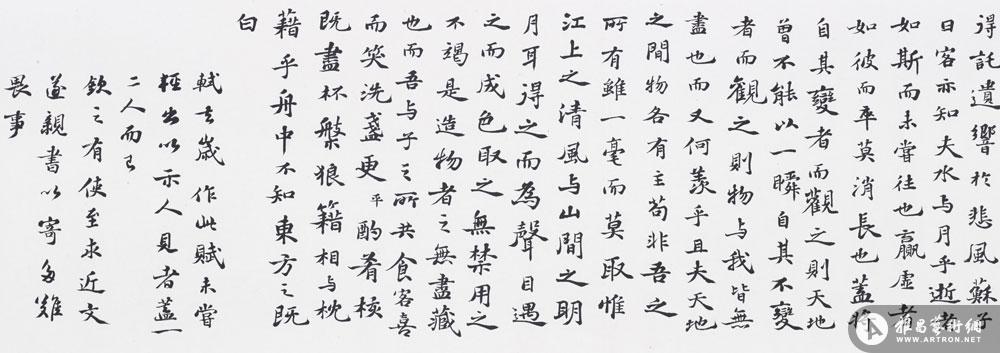 得託遺響於悲風蘇子
曰客亦知夫水与月乎逝者
如斯而未嘗往也贏虛者
如彼而卒莫消長也盖將
自其變者而觀之則天地
曾不能以一瞬自其不變
者而觀之則物与我皆無
盡也而又何羨乎且夫天地
之間物各有主苟非吾之
所有雖一毫而莫取惟
江上之清風与山間之明
月耳得之而為聲目遇
之而成色取之無禁用之
不竭是造物者之無盡藏
也而吾与子之所共食客喜
而笑洗盞更平酌肴核
既盡杯槃狼籍相与枕
藉乎舟中不知東方之既
白
軾去歲作此賦未嘗
輕出以示人見者盖一
二人而已
欽之有使至求近文
遂親書以寄多難
畏事
雅昌藝術網
WWW.ARTRON.NET